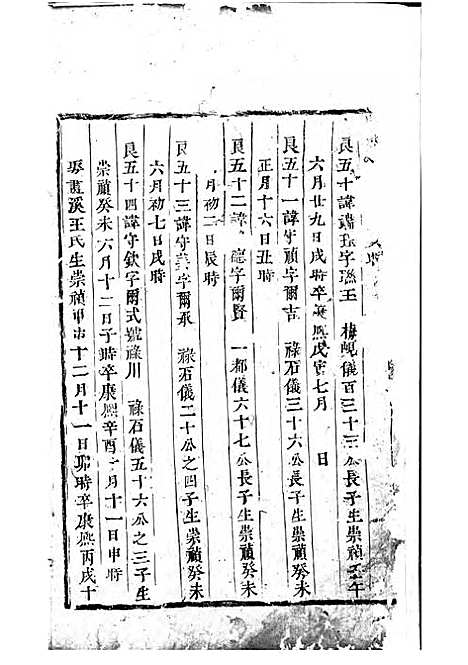 良五十諱瑞珎字璵玉 梅峴儀百三十三公長子生崇禎壬午
六月廿九日戌時卒康熙戊寅七月 日
良五十一諱守禎字爾吉 祿石儀三十六公長子生崇禎癸未
正月十六日丑時
良五十二諱 德字爾賢 一都儀六十七公長子生崇禎癸未
月初二日辰時
良五十三諱守美字爾承 祿石儀二十公之四子生崇禎癸未
六月初七日戌時
良五十四諱守欽字爾式號祿川 祿石儀五十六公之三子生
崇禎癸未六月十二日子時卒康熙辛酉 月十一日申時
娶 溪王氏生崇禎甲申十二月十一日卯時卒康熙丙戌十